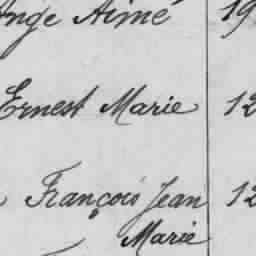 Ange Aimé 19
Ernest Marie 12
François Jean 12
Marie